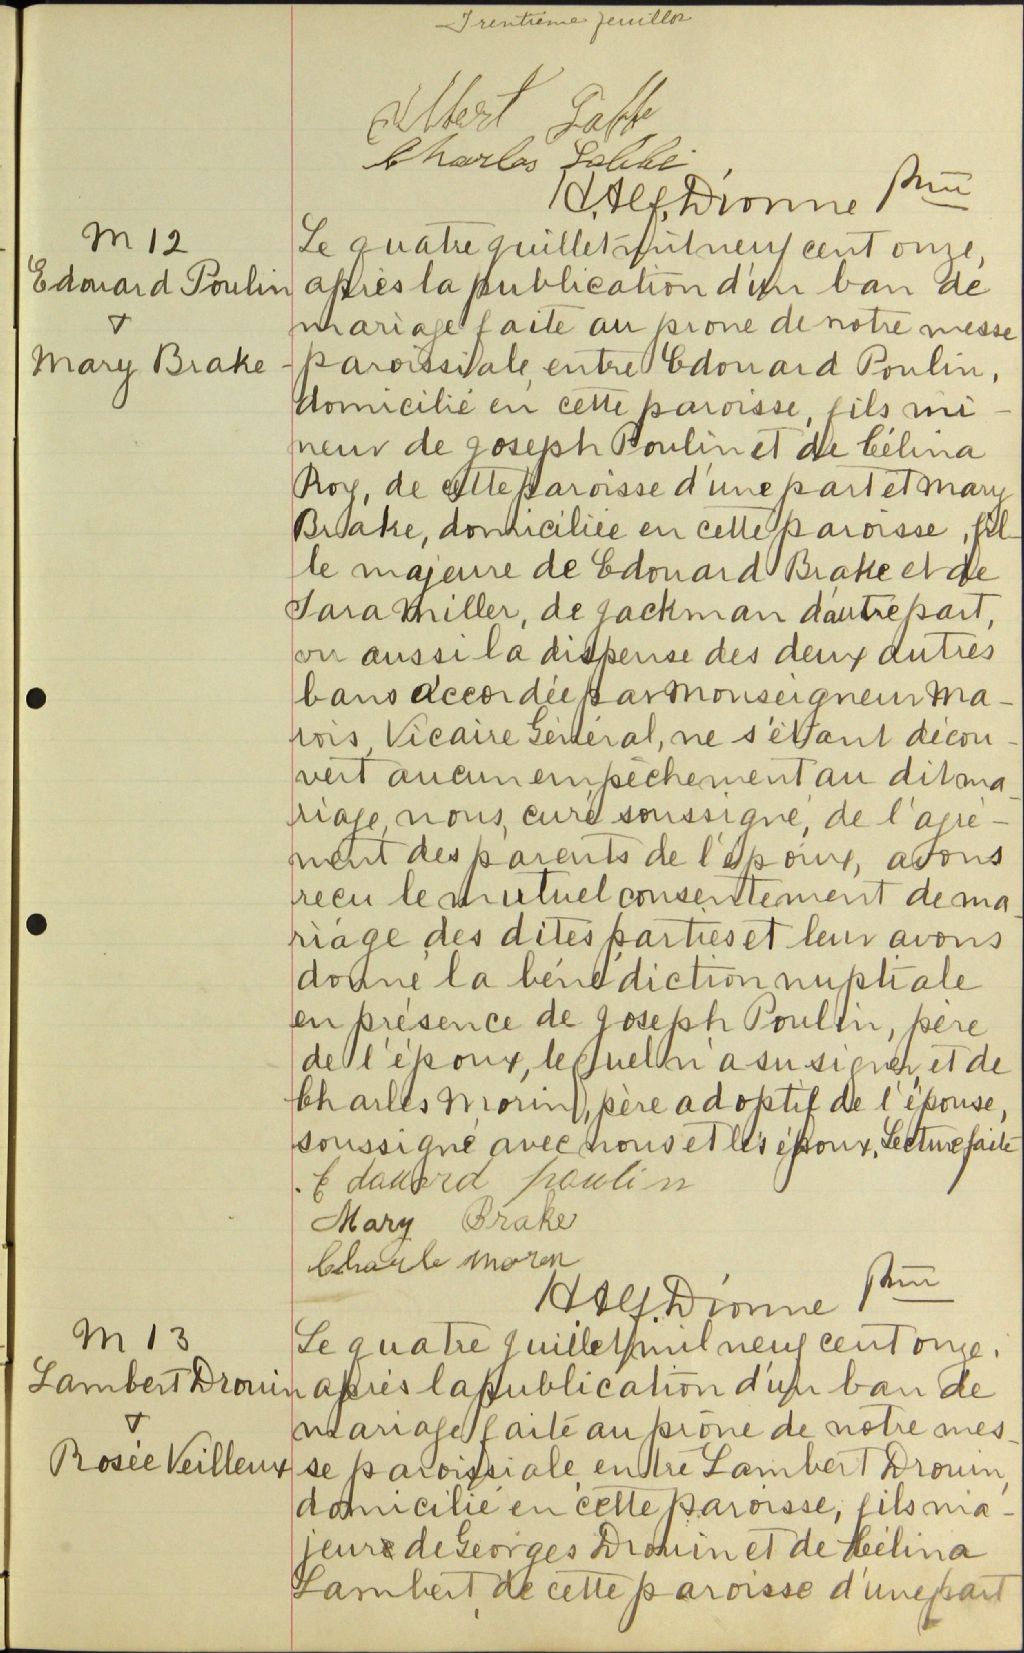 Trentième feuillet
Albert
Charles
H. Alf. Dionne Ptre
M 12
Edouard Poulin
&
Mary Brake
Le quatre juillet mil neuf cent onze,
après la publication d'un ban de
mariage faite au prone de notre messe
paroissiale, entre Edouard Poulin,
domicilié en cette paroisse, fils mi-
neur de Joseph Poulin et de Célina
Roy, de cette paroisse d'une part et Mary
Brake, domiciliée en cette paroisse, fil-
le majeure de Edouard Brake et de
Sara Miller, de Jackman d'autre part,
vu aussi la dispense des deux autres
bans accordée par Monseigneur Ma-
rois, Vicaire Général, ne s'étant décou-
vert aucun empêchement au dit ma-
riage, nous, curé soussigné, de l'agré-
ment des parents de l'époux, avons
reçu le mutuel consentement de ma-
riage des dites parties et leur avons
donné la bénédiction nuptiale
en présence de Joseph Poulin, père
de l'époux, lequel n'a su signer, et de
Charles Morin, père adoptif de l'épouse,
soussigné avec nous et les époux, Lecture faite
Edouard poulin
Mary Brake
Charle moren
H Alf. Dionne Ptre
M 13
Lambert Drouin
&
Rosée Veilleux
Le quatre juillet mil neuf cent onze,
après la publication d'un ban de
mariage faite au prône de notre mes-
se paroissiale, entre Lambert Drouin,
domicilié en cette paroisse, fils ma-
jeure de Georges Drouin et de Célina
Lambert, de cette paroisse d'une part